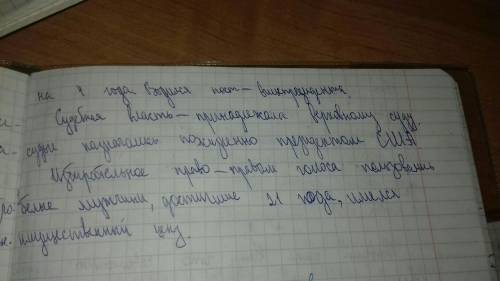 на 4 года. Вводился пост – вицепрезидента.
Судебная власть – принадлежала Верховному суду,
судьи назначались пожизненно президентом США
Избирательное право – правом голоса пользовались
белые мужчины, достигшие 21 года, имелся
имущественный ценз.